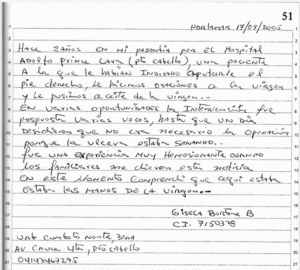 51
Porlamar 17/09/2005
Hace 2 años en mi pasantia por el Hospital
Adolfo Prince Lara (Pto Cabello), una paciente
A la que le habian indicado amputarle el
pie derecho, le hicimos oraciones a la virgen
y le pusimos aceite de la virgen...
En varias oportunidades la intervención fue
pospuesta varias veces, hasta que un dia
Decidieron que no era necesario la operación
porque la ulcera estaba sanando..
fue una experiencia muy cuando
los familiares me dieron esta noticia
En este momento comprendi que aqui estaba
Estaba las manos de la virgen...
Gisela B
C.I. 7150379
Urb Cumboto Norte
Av Pto Cabello
04144467295